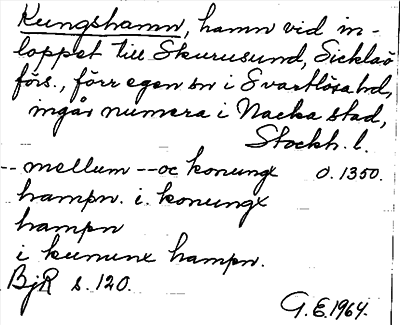 Kungshamn, hamn vid in-
loppet till Skurusund, Sicklaö
förs., förr egen sn i Svartlösa hd,
ingår numera i Nacka stad,
Stockh. l.
-- mellum -- oc konungx 0.1350.
hampn. i. konungx
hampn
i kununx hampn.
BjR s. 120.
G. E. 1964.